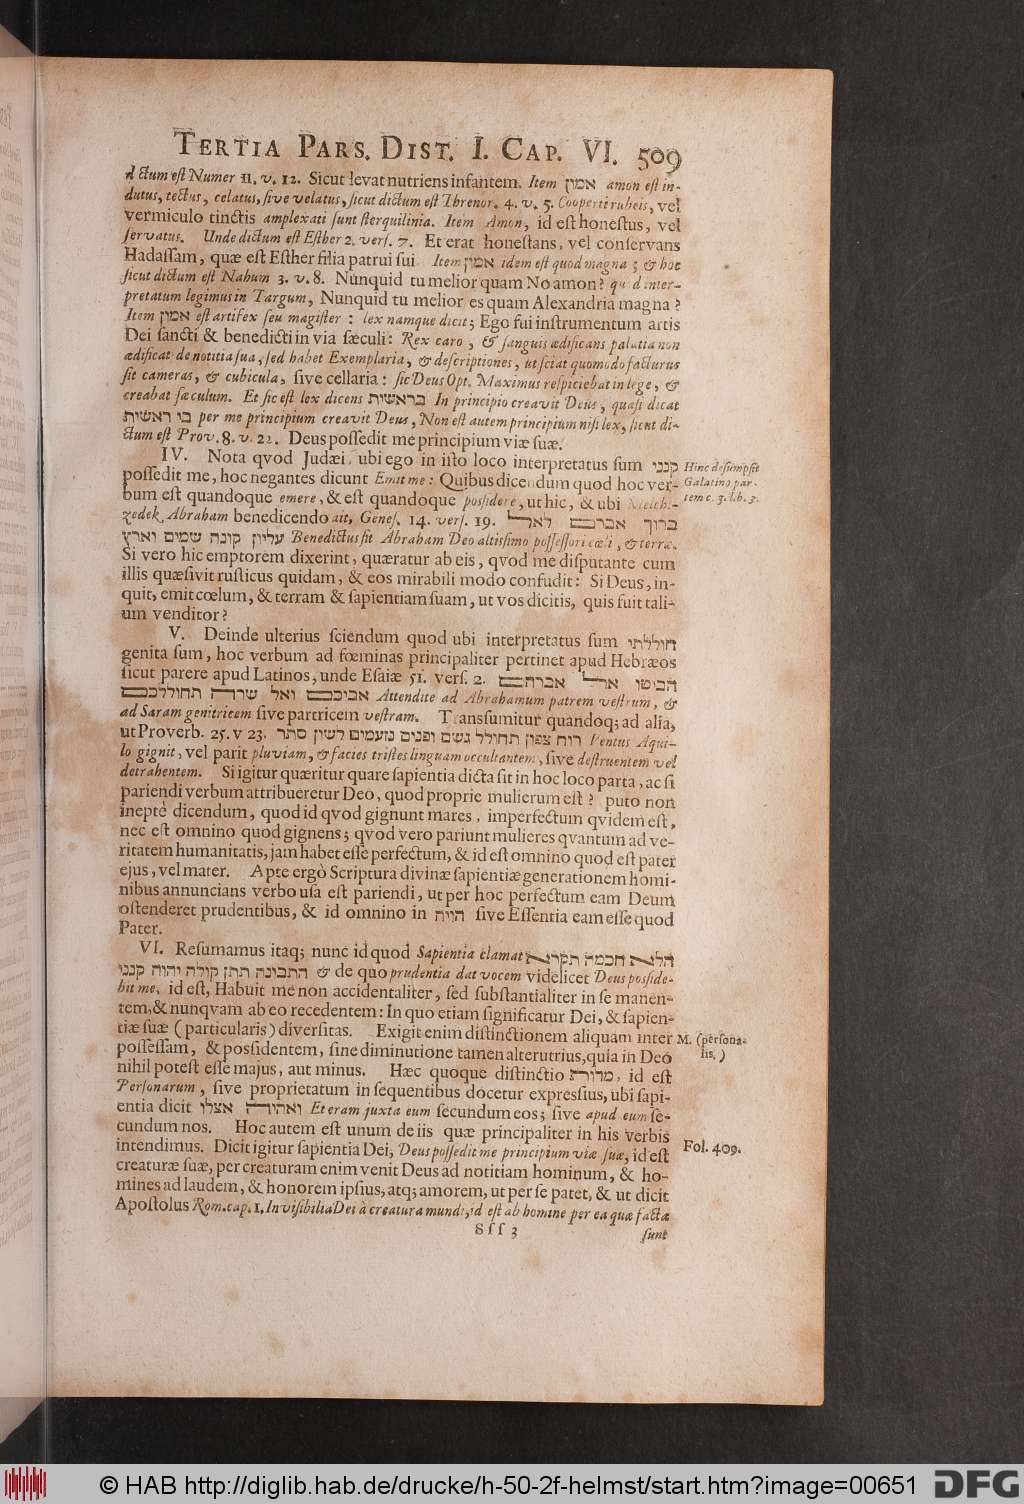 TERTIA PARS. DIST. I. CAP. VI. 509
dictum est Numer 11. v. 12. Sicut levat nutriens infantem. Item אמון amon est in-
dutus, tectus, celatus, sive velatus, sicut dictum est Threnor. 4. v. 5. Cooperti rubeis, vel
vermiculo tinctis amplexati sunt sterquilinia. Item Amon, id est honestus, vel
servatus. Unde dictum est Esther 2. vers. 7. Et erat honestans, vel conservans
Hadassam, quæ est Esther filia patrui sui. Item אמון idem est quod magna ; & hoc
sicut dictum est Nahum 3. v. 8. Nunquid tu melior quam No amon? quod inter-
pretatum legimus in Targum, Nunquid tu melior es quam Alexandria magna?
Item אמון est artifex seu magister : lex namque dicit ; Ego fui instrumentum artis
Dei sancti & benedicti in via sæculi: Rex caro, & sanguis ædificans palatia non
ædificat de notitia sua, sed habet Exemplaria, & descriptiones, ut sciat quomodo facturus
sit cameras, & cubicula, sive cellaria: sic Deus Opt. Maximus respiciebat in lege, &
creabat sæculum. Et sic est lex dicens בראשית In principio creavit Deus, quasi dicat
בי ראשית per me principium creavit Deus, Non est autem principium nisi lex, sicut di-
ctum est Prov. 8. v. 22. Deus possedit me principium viæ suæ.
IV. Nota qvod Judæi, ubi ego in isto loco interpretatus sum קנני
possedit me, hoc negantes dicunt Emit me: Quibus dicendum quod hoc ver-
bum est quandoque emere, & est quandoque possidere, ut hic, & ubi Melchi-
zedek Abraham benedicendo ait, Genes. 14. vers. 19. ברוך אברם לאל
עליון קונה שמים וארץ Benedictus sit Abraham Deo altissimo possessori cœli, & terræ.
Si vero hic emptorem dixerint, quæratur ab eis, qvod me disputante cum
illis quæsivit rusticus quidam, & eos mirabili modo confudit: Si Deus, in-
quit, emit cœlum, & terram & sapientiam suam, ut vos dicitis, quis fuit tali-
um venditor?
V. Deinde ulterius sciendum quod ubi interpretatus sum חוללתי
genita sum, hoc verbum ad fœminas principaliter pertinet apud Hebræos
sicut parere apud Latinos, unde Esaiæ 51. vers. 2. הביטו אל אברהם
אביכם ואל שרה תחוללכם Attendite ad Abrahamum patrem vestrum, &
ad Saram genitricem sive partricem vestram. Transsumitur quandoq; ad alia,
ut Proverb. 25. v 23. רוח צפון תחולל גשם ופנים נזעמים לשון סתר Ventus Aqui-
lo gignit, vel parit pluviam, & facies tristes linguam occultantem, sive destruentem vel
detrahentem. Si igitur quæritur quare sapientia dicta sit in hoc loco parta, ac si
pariendi verbum attribueretur Deo, quod proprie mulierum est? puto non
ineptè dicendum, quod id qvod gignunt mares, imperfectum qvidem est,
nec est omnino quod gignens; qvod vero pariunt mulieres qvantum ad ve-
ritatem humanitatis, jam habet esse perfectum, & id est omnino quod est pater
ejus, vel mater. Apte ergò Scriptura divinæ sapientiæ generationem homi-
nibus annuncians verbo usa est pariendi, ut per hoc perfectum eam Deum
ostenderet prudentibus, & id omnino in הויה sive Essentia eam esse quod
Pater.
VI. Resumamus itaq; nunc id quod Sapientia clamat הלא חכמה תקרא
התבונה תתן קולה יהוה קנני & de quo prudentia dat vocem videlicet Deus posside-
bit me, id est, Habuit me non accidentaliter, sed substantialiter in se manen-
tem, & nunqvam ab eo recedentem: In quo etiam significatur Dei, & sapien-
tiæ suæ (particularis) diversitas. Exigit enim distinctionem aliquam inter
possessam, & possidentem, sine diminutione tamen alterutrius, quia in Deo
nihil potest esse majus, aut minus. Hæc quoque distinctio מדות, id est
Personarum, sive proprietatum in sequentibus docetur expressius, ubi sapi-
entia dicit ואהיה אצלו Et eram juxta eum secundum eos; sive apud eum se-
cundum nos. Hoc autem est unum de iis quæ principaliter in his verbis
intendimus. Dicit igitur sapientia Dei, Deus possedit me principium viæ suæ, id est
creaturæ suæ, per creaturam enim venit Deus ad notitiam hominum, & ho-
mines ad laudem, & honorem ipsius, atq; amorem, ut per se patet, & ut dicit
Apostolus Rom. cap. 1. Invisibilia Dei à creatura mundi, id est ab homine per ea quæ facta
Sss 3
sunt
Hinc desumpsit
Galatino par-
tem c. 3. lib. 3.
M. (persona-
lis.)
Fol. 409.
© HAB http://diglib.hab.de/drucke/h-50-2f-helmst/start.htm?image=00651
DFG